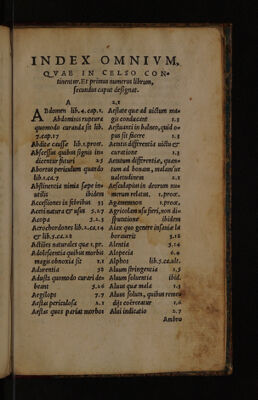 INDEX OMNIVM,
QVAE IN CELSO CON-
tinentur. Et primus numerus librum,
secundus caput designat.
A
ABdomen lib. 4. cap. 1.
Abdominis ruptura
quomodo curanda sit lib.
7. cap. 17
Abditæ caussæ lib. 1. proœ.
Abscessus quibus signis in-
dicentur futuri 2.5
Abortus periculum quando
lib. 1. ca. 7
Abstinentia nimia sæpe in-
utilis ibidem
Accessiones in febribus 33
Aceti natura & usus 5.27
Acopa 5.2.5
Acrochordones lib. 2. ca. 14
& lib. 5. ca. 22
Actiões naturales quæ 1. pr.
Adolescentia quibus morbis
magis obnoxia sit 2.1
Adurentia 52
Adusta quomodo curari de-
beant 5.26
Aegilops 7.7
Aestas periculosa 2.1
Aestas quos pariat morbos
2.1
Aestate quæ ad uictum ma-
gis conducant 1.3
Aestuanti in balneo, quid o-
pus sit facere 1.3
Acutis differentia uictu &
curatione 1.3
Acutum differentiæ, quan-
tum ad bonam, malam'ue
ualetudinem 2.1
Aesculapius in deorum nu-
merum relatus. 1. proœ.
Agamemnon 1. proœ.
Agricolam usu fieri, non di-
sputatione ibidem
Aiax quo genere insaniæ la-
borauerit 3.18
Alentia 5.14
Alopecia 6.4
Alphos lib. 5. ca. ult.
Aluum stringentia 1.3
Aluum soluentia ibid.
Aluus quæ mala 1.3
Aluus soluta, quibus reme-
dijs coërceatur 1.6
Alui indicatio 2.7
Ambro